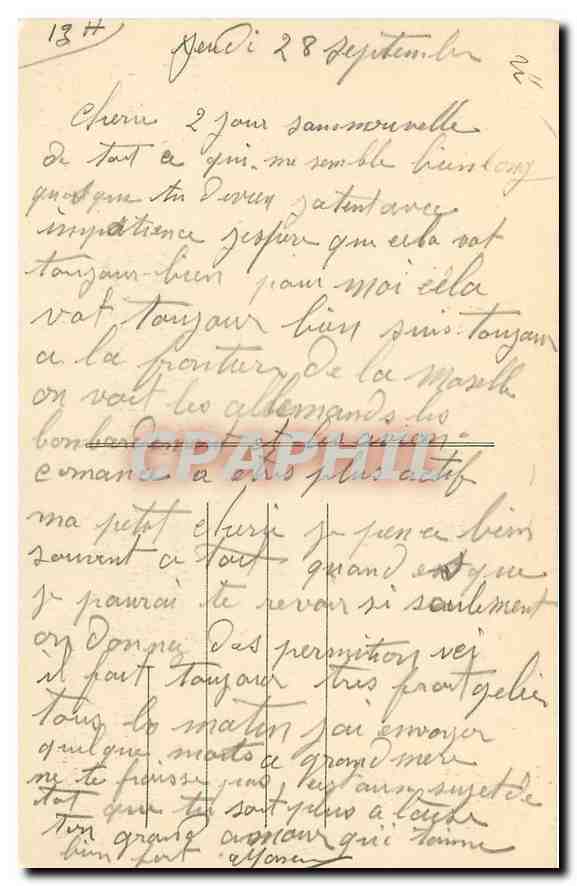 19 H
Jeudi 28 septembre
Cherie 2 jour sans nouvelle
de toit ce qui me semble bien long
que tu devien jatent avec
impatience jespere que cela vat
toujour bien pour moi cela
vat toujour bien suis toujour
a la frontiere de la Moselle
on voit les allemands les
bonbardement et les avion
comance a etres plus actif
ma petit cherie je pence bien
souvent a toit quand esque
je pourai te revoir si seulement
on donnez das permition ici
il fait toujour tres froit gelee
tous les matin j'ai envoyer
quelque mots a grand mere
ne te froisse pas au sujet de
toi que tu soit plus a laise
ton grand amour qui t'aime
bien fort
CPAPHIL